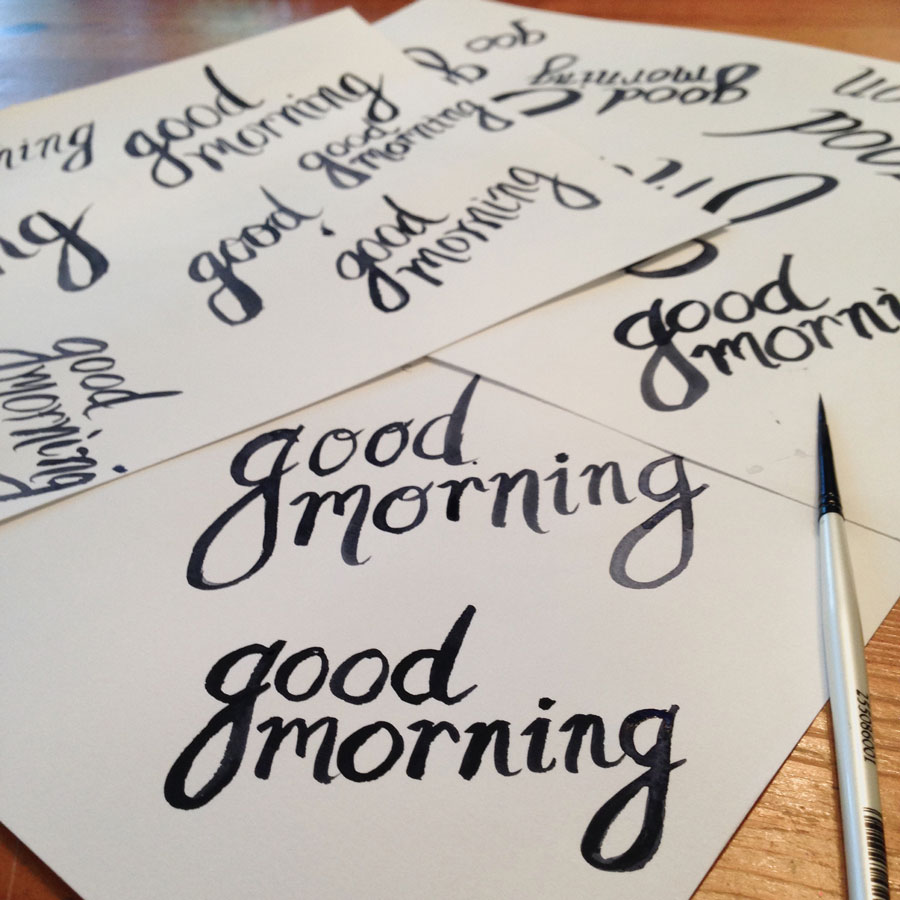 goo
good
morning
good
morning
ning
good
morning
good
morning
ng
good
good
morning
good
morni
good
morning
good
morning
good
morning